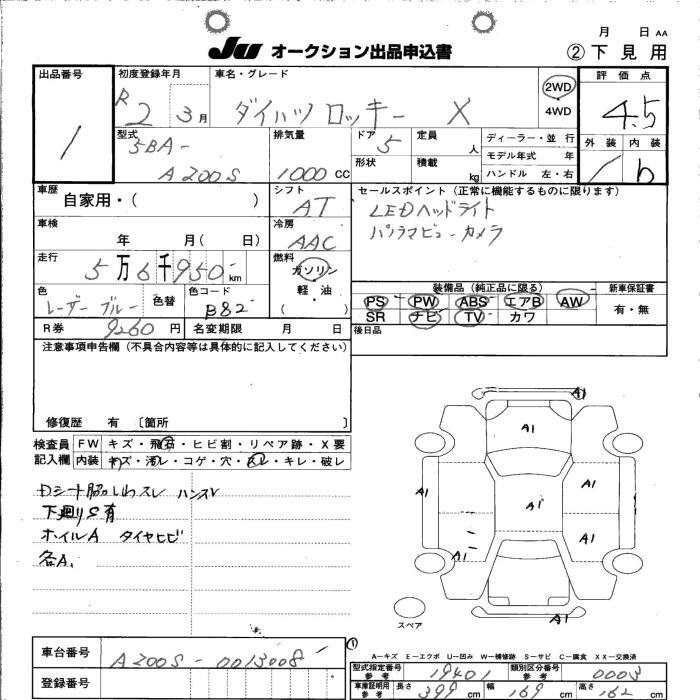 月 日 AA
JU オークション出品申込書 ②下見用
出品番号 初度登録年月 車名・グレード 評価点
1 R2 3月 ダイハツ ロッキー X 2WD 4WD 4.5
型式 排気量 ドア 定員 ディーラー・並行 外装 内装
5BA- A200S 1000 CC 5 人 モデル年式 年
形状 積載 kg ハンドル 左・右 b
車歴 シフト セールスポイント(正常に機能するものに限ります)
自家用・( ) AT LEDヘッドライト
車検 冷房 パノラマビューカメラ
年 月( 日) AAC
走行 燃料
5万6千950km ガソリン
軽・油
( )
色 色替 色コード 装備品(純正品に限る) 新車保証書
レーザーブルー B82 PS PW ABS エアB AW 有・無
R券 9260円 名変期限 月 日 SR ナビ TV カワ
後日品
注意事項申告欄(不具合内容等は具体的に記入してください)
修復歴 有 〔箇所 〕
検査員 FW キズ・飛石・ヒビ割・リペア跡・X要
記入欄 内装 キズ・汚レ・コゲ・穴・スレ・キレ・破レ
Dシート脇のしわスレ ハンスレ
下廻りS有
ホイルA タイヤヒビ
各A1
A1
A1
A1 A1 A1
A1 A1
A1
スペア
A-キズ E-エクボ U-凹み W-補修跡 S-サビ C-腐食 XX-交換済
車台番号 A200S-0013008
登録番号
型式指定番号 参考 19401 類別区分番号 参考 0003
車庫証明用 参考 長さ 399 cm 幅 169 cm 高さ 162 cm